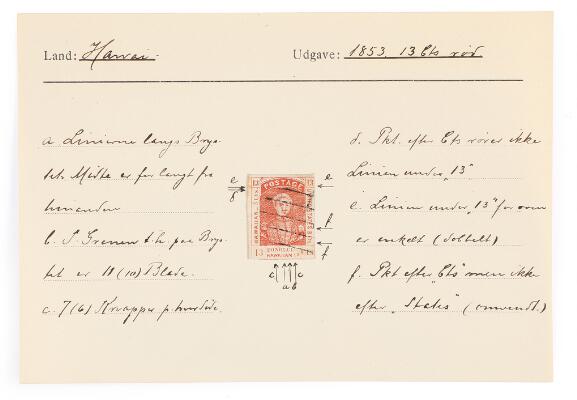 Land: Hawai.
Udgave: 1853. 13 Cts rød
a Linierne langs Brys-
tets Midte er for langt fra
hinanden
b. I Grenen t.h. paa Brys-
tet er 11 (10) Blade.
c. 7 (6) Knapper p. hver Side.
d. Pkt. efter Cts rører ikke
Linien under „13"
e. Linien under „13" for oven
er enkelt (dobbelt)
f. Pkt efter „Cts" men ikke
efter „States" (omvendt.)
e
g
e
f
f
c c
a b
13 POSTAGE 13
HAWAIIAN
13 13